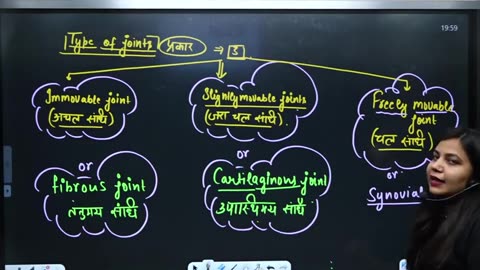 19:59
Type of joints (प्रकार) ⇒ 3
Immovable joint
(अचल संधि)
or
fibrous joint
तन्तुमय संधि
Slightly movable joints
(जरा चल संधि).
or
Cartilaginous joint
उपास्थिमय संधि
Freely movable
joint
(चल संधि)
or
Synovia